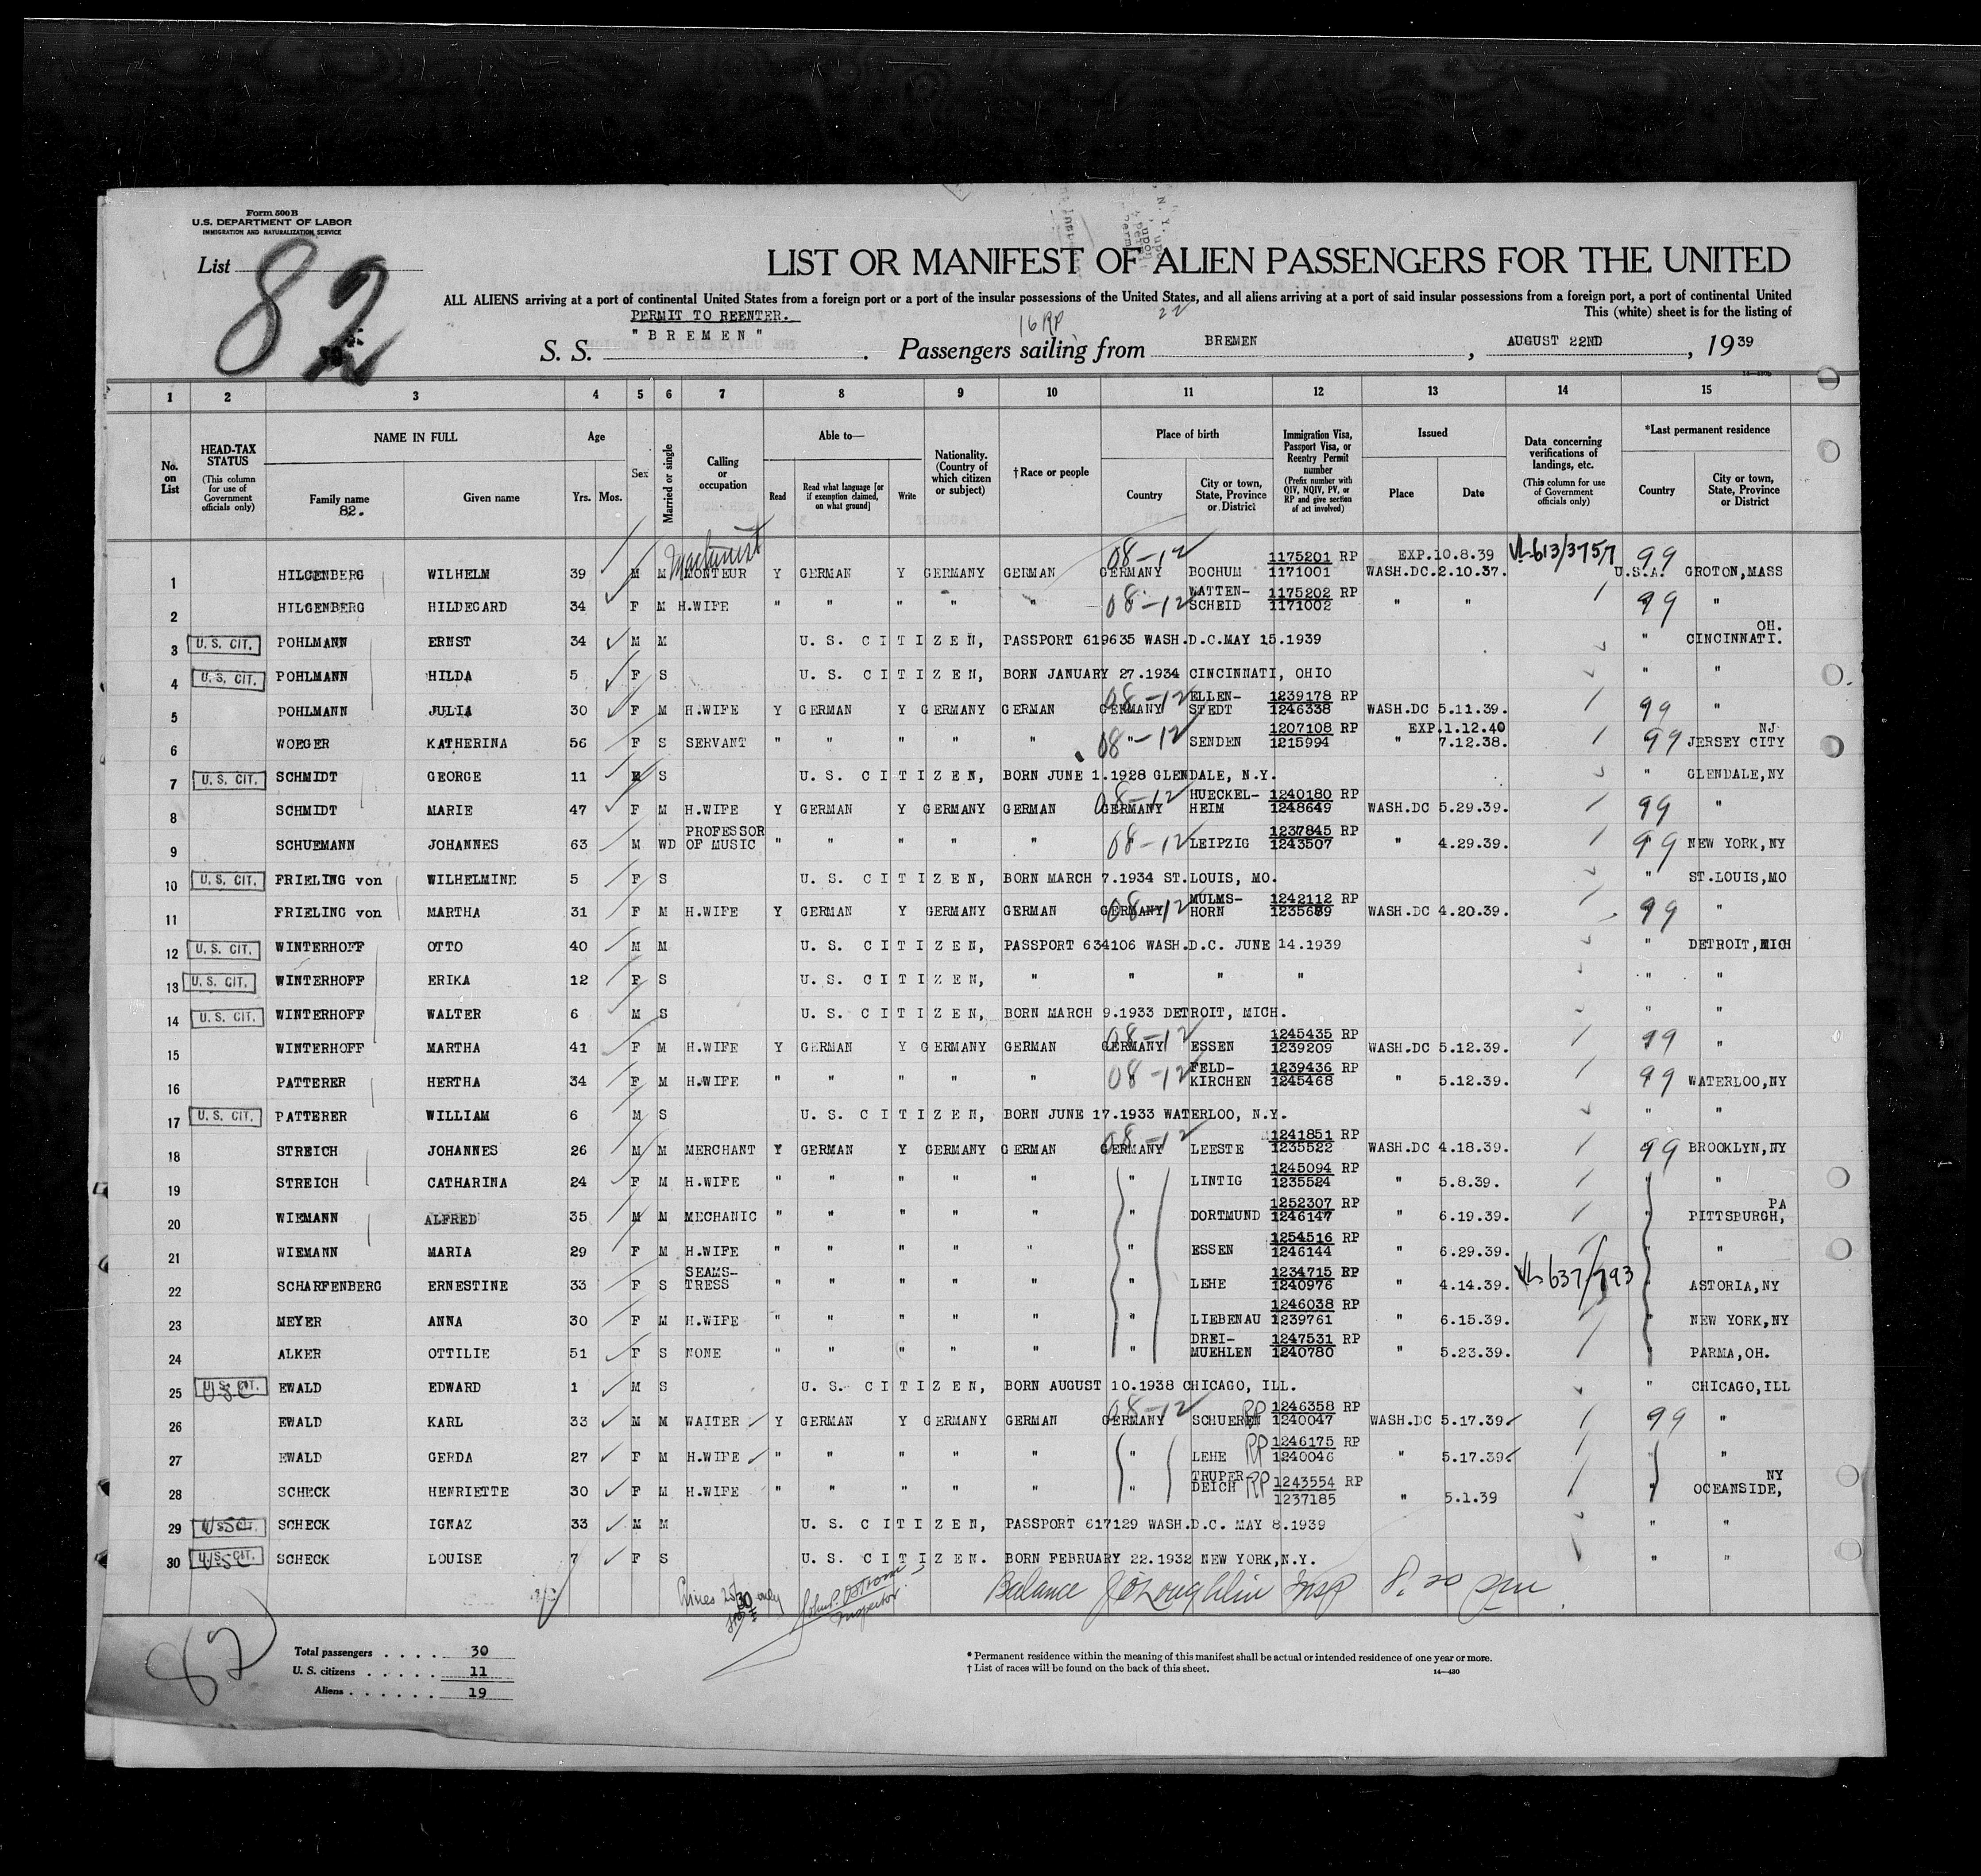 Form 500 B
U.S. DEPARTMENT OF LABOR
IMMIGRATION AND NATURALIZATION SERVICE
List 82
LIST OR MANIFEST OF ALIEN PASSENGERS FOR THE UNITED
ALL ALIENS arriving at a port of continental United States from a foreign port or a port of the insular possessions of the United States, and all aliens arriving at a port of said insular possessions from a foreign port, a port of continental United
PERMIT TO REENTER. This (white) sheet is for the listing of
16 RP 22
S. S. "BREMEN". Passengers sailing from BREMEN, AUGUST 22ND, 1939
1 2 3 4 5 6 7 8 9 10 11 12 13 14 15
No. on List
HEAD-TAX STATUS (This column for use of Government officials only)
NAME IN FULL Family name Given name
82.
Age Yrs. Mos.
Sex
Married or single
Calling or occupation
Able to— Read Read what language [or if exemption claimed, on what ground] Write
Nationality. (Country of which citizen or subject)
†Race or people
Place of birth Country City or town, State, Province or District
Immigration Visa, Passport Visa, or Reentry Permit number (Prefix number with QIV, NQIV, PV, or RP and give section of act involved)
Issued Place Date
Data concerning verifications of landings, etc. (This column for use of Government officials only)
*Last permanent residence Country City or town, State, Province or District
1 HILGENBERG WILHELM 39 M M Machinist MONTEUR Y GERMAN Y GERMANY GERMAN 08-12 GERMANY BOCHUM 1175201 RP 1171001 EXP.10.8.39 WASH.DC.2.10.37. VL-613/3757 99 U.S.A. GROTON,MASS
2 HILGENBERG HILDEGARD 34 F M H.WIFE " " " " " 08-12 WATTEN-SCHEID 1175202 RP 1171002 " " 99 "
3 U. S. CIT. POHLMANN ERNST 34 M M U. S. CITIZEN, PASSPORT 619635 WASH.D.C.MAY 15.1939 " OH. CINCINNATI.
4 U. S. CIT. POHLMANN HILDA 5 F S U. S. CITIZEN, BORN JANUARY 27.1934 CINCINNATI, OHIO " "
5 POHLMANN JULIA 30 F M H.WIFE Y GERMAN Y GERMANY GERMAN 08-12 GERMANY ELLEN-STEDT 1239178 RP 1246338 WASH.DC 5.11.39. 99 "
6 WOEGER KATHERINA 56 F S SERVANT " " " " " 08-12 " SENDEN 1207108 RP 1215994 EXP.1.12.40 " 7.12.38. 99 NJ JERSEY CITY
7 U. S. CIT. SCHMIDT GEORGE 11 M S U. S. CITIZEN, BORN JUNE 1.1928 GLENDALE, N.Y. " GLENDALE,NY
8 SCHMIDT MARIE 47 F M H.WIFE Y GERMAN Y GERMANY GERMAN 08-12 GERMANY HUECKEL-HEIM 1240180 RP 1248649 WASH.DC 5.29.39. 99 "
9 SCHUEMANN JOHANNES 63 M WD PROFESSOR OF MUSIC " " " " " 08-12 LEIPZIG 1237845 RP 1243507 " 4.29.39. 99 NEW YORK,NY
10 U. S. CIT. FRIELING von WILHELMINE 5 F S U. S. CITIZEN, BORN MARCH 7.1934 ST.LOUIS, MO. " ST.LOUIS,MO
11 FRIELING von MARTHA 31 F M H.WIFE Y GERMAN Y GERMANY GERMAN 08-12 GERMANY MULMS-HORN 1242112 RP 1235689 WASH.DC 4.20.39. 99 "
12 U. S. CIT. WINTERHOFF OTTO 40 M M U. S. CITIZEN, PASSPORT 634106 WASH.D.C. JUNE 14.1939 " DETROIT,MICH
13 U. S. CIT. WINTERHOFF ERIKA 12 F S U. S. CITIZEN, " " " " " "
14 U. S. CIT. WINTERHOFF WALTER 6 M S U. S. CITIZEN, BORN MARCH 9.1933 DETROIT, MICH. " "
15 WINTERHOFF MARTHA 41 F M H.WIFE Y GERMAN Y GERMANY GERMAN 08-12 GERMANY ESSEN 1245435 RP 1239209 WASH.DC 5.12.39. 99 "
16 PATTERER HERTHA 34 F M H.WIFE " " " " " 08-12 FELD-KIRCHEN 1239436 RP 1245468 " 5.12.39. 99 WATERLOO,NY
17 U. S. CIT. PATTERER WILLIAM 6 M S U. S. CITIZEN, BORN JUNE 17.1933 WATERLOO, N.Y. " "
18 STREICH JOHANNES 26 M M MERCHANT Y GERMAN Y GERMANY GERMAN 08-12 GERMANY LEESTE 1241851 RP 1235522 WASH.DC 4.18.39. 99 BROOKLYN,NY
19 STREICH CATHARINA 24 F M H.WIFE " " " " " " LINTIG 1245094 RP 1235524 " 5.8.39. " "
20 WIEMANN ALFRED 35 M M MECHANIC " " " " " " DORTMUND 1252307 RP 1246147 " 6.19.39. " PA PITTSBURGH,
21 WIEMANN MARIA 29 F M H.WIFE " " " " " " ESSEN 1254516 RP 1246144 " 6.29.39. " "
22 SCHARFENBERG ERNESTINE 33 F S SEAMS-TRESS " " " " " " LEHE 1234715 RP 1240976 " 4.14.39. VL-637/793 " ASTORIA,NY
23 MEYER ANNA 30 F M H.WIFE " " " " " " LIEBENAU 1246038 RP 1239761 " 6.15.39. " NEW YORK,NY
24 ALKER OTTILIE 51 F S NONE " " " " " " DREI-MUEHLEN 1247531 RP 1240780 " 5.23.39. " PARMA,OH.
25 U. S. CIT. USC EWALD EDWARD 1 M S U. S. CITIZEN, BORN AUGUST 10.1938 CHICAGO, ILL. " CHICAGO,ILL
26 EWALD KARL 33 M M WAITER Y GERMAN Y GERMANY GERMAN 08-12 GERMANY SCHUEREN RP 1246358 RP 1240047 WASH.DC 5.17.39 99 "
27 EWALD GERDA 27 F M H.WIFE " " " " " " LEHE RP 1246175 RP 1240046 " 5.17.39 " "
28 SCHECK HENRIETTE 30 F M H.WIFE " " " " " " TRUPER-DEICH RP 1243554 RP 1237185 " 5.1.39 " NY OCEANSIDE,
29 U. S. CIT. USC SCHECK IGNAZ 33 M M U. S. CITIZEN, PASSPORT 617129 WASH.D.C. MAY 8.1939 " "
30 U. S. CIT. USC SCHECK LOUISE 7 F S U. S. CITIZEN. BORN FEBRUARY 22.1932 NEW YORK,N.Y. " "
Lines 25 30 only Inspector Balance J O'Loughlin Insp 8.20 pm
82
Total passengers . . . . 30
U. S. citizens . . . . . 11
Aliens . . . . . . 19
* Permanent residence within the meaning of this manifest shall be actual or intended residence of one year or more.
† List of races will be found on the back of this sheet. 14—430